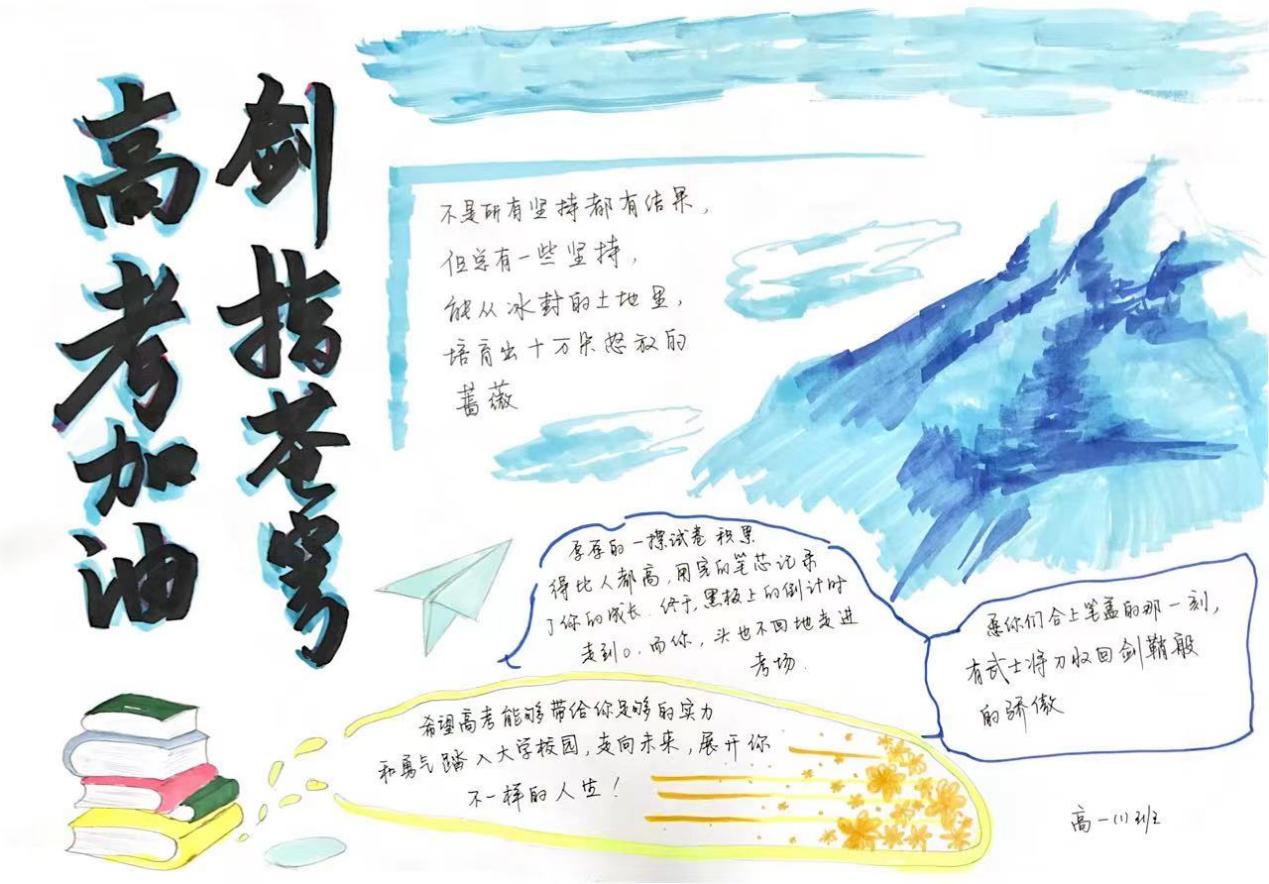 剑指苍穹
高考加油
不是所有坚持都有结果,
但总有一些坚持,
能从冰封的土地里,
培育出十万朵怒放的
蔷薇
厚厚的一摞试卷积累
得比人都高,用完的笔芯记录
了你的成长.终于,黑板上的倒计时
走到0.而你,头也不回地走进
考场.
愿你们合上笔盖的那一刻,
有武士将刀收回剑鞘般
的骄傲
希望高考能够带给你足够的实力
和勇气踏入大学校园,走向未来,展开你
不一样的人生!
高一(1)班